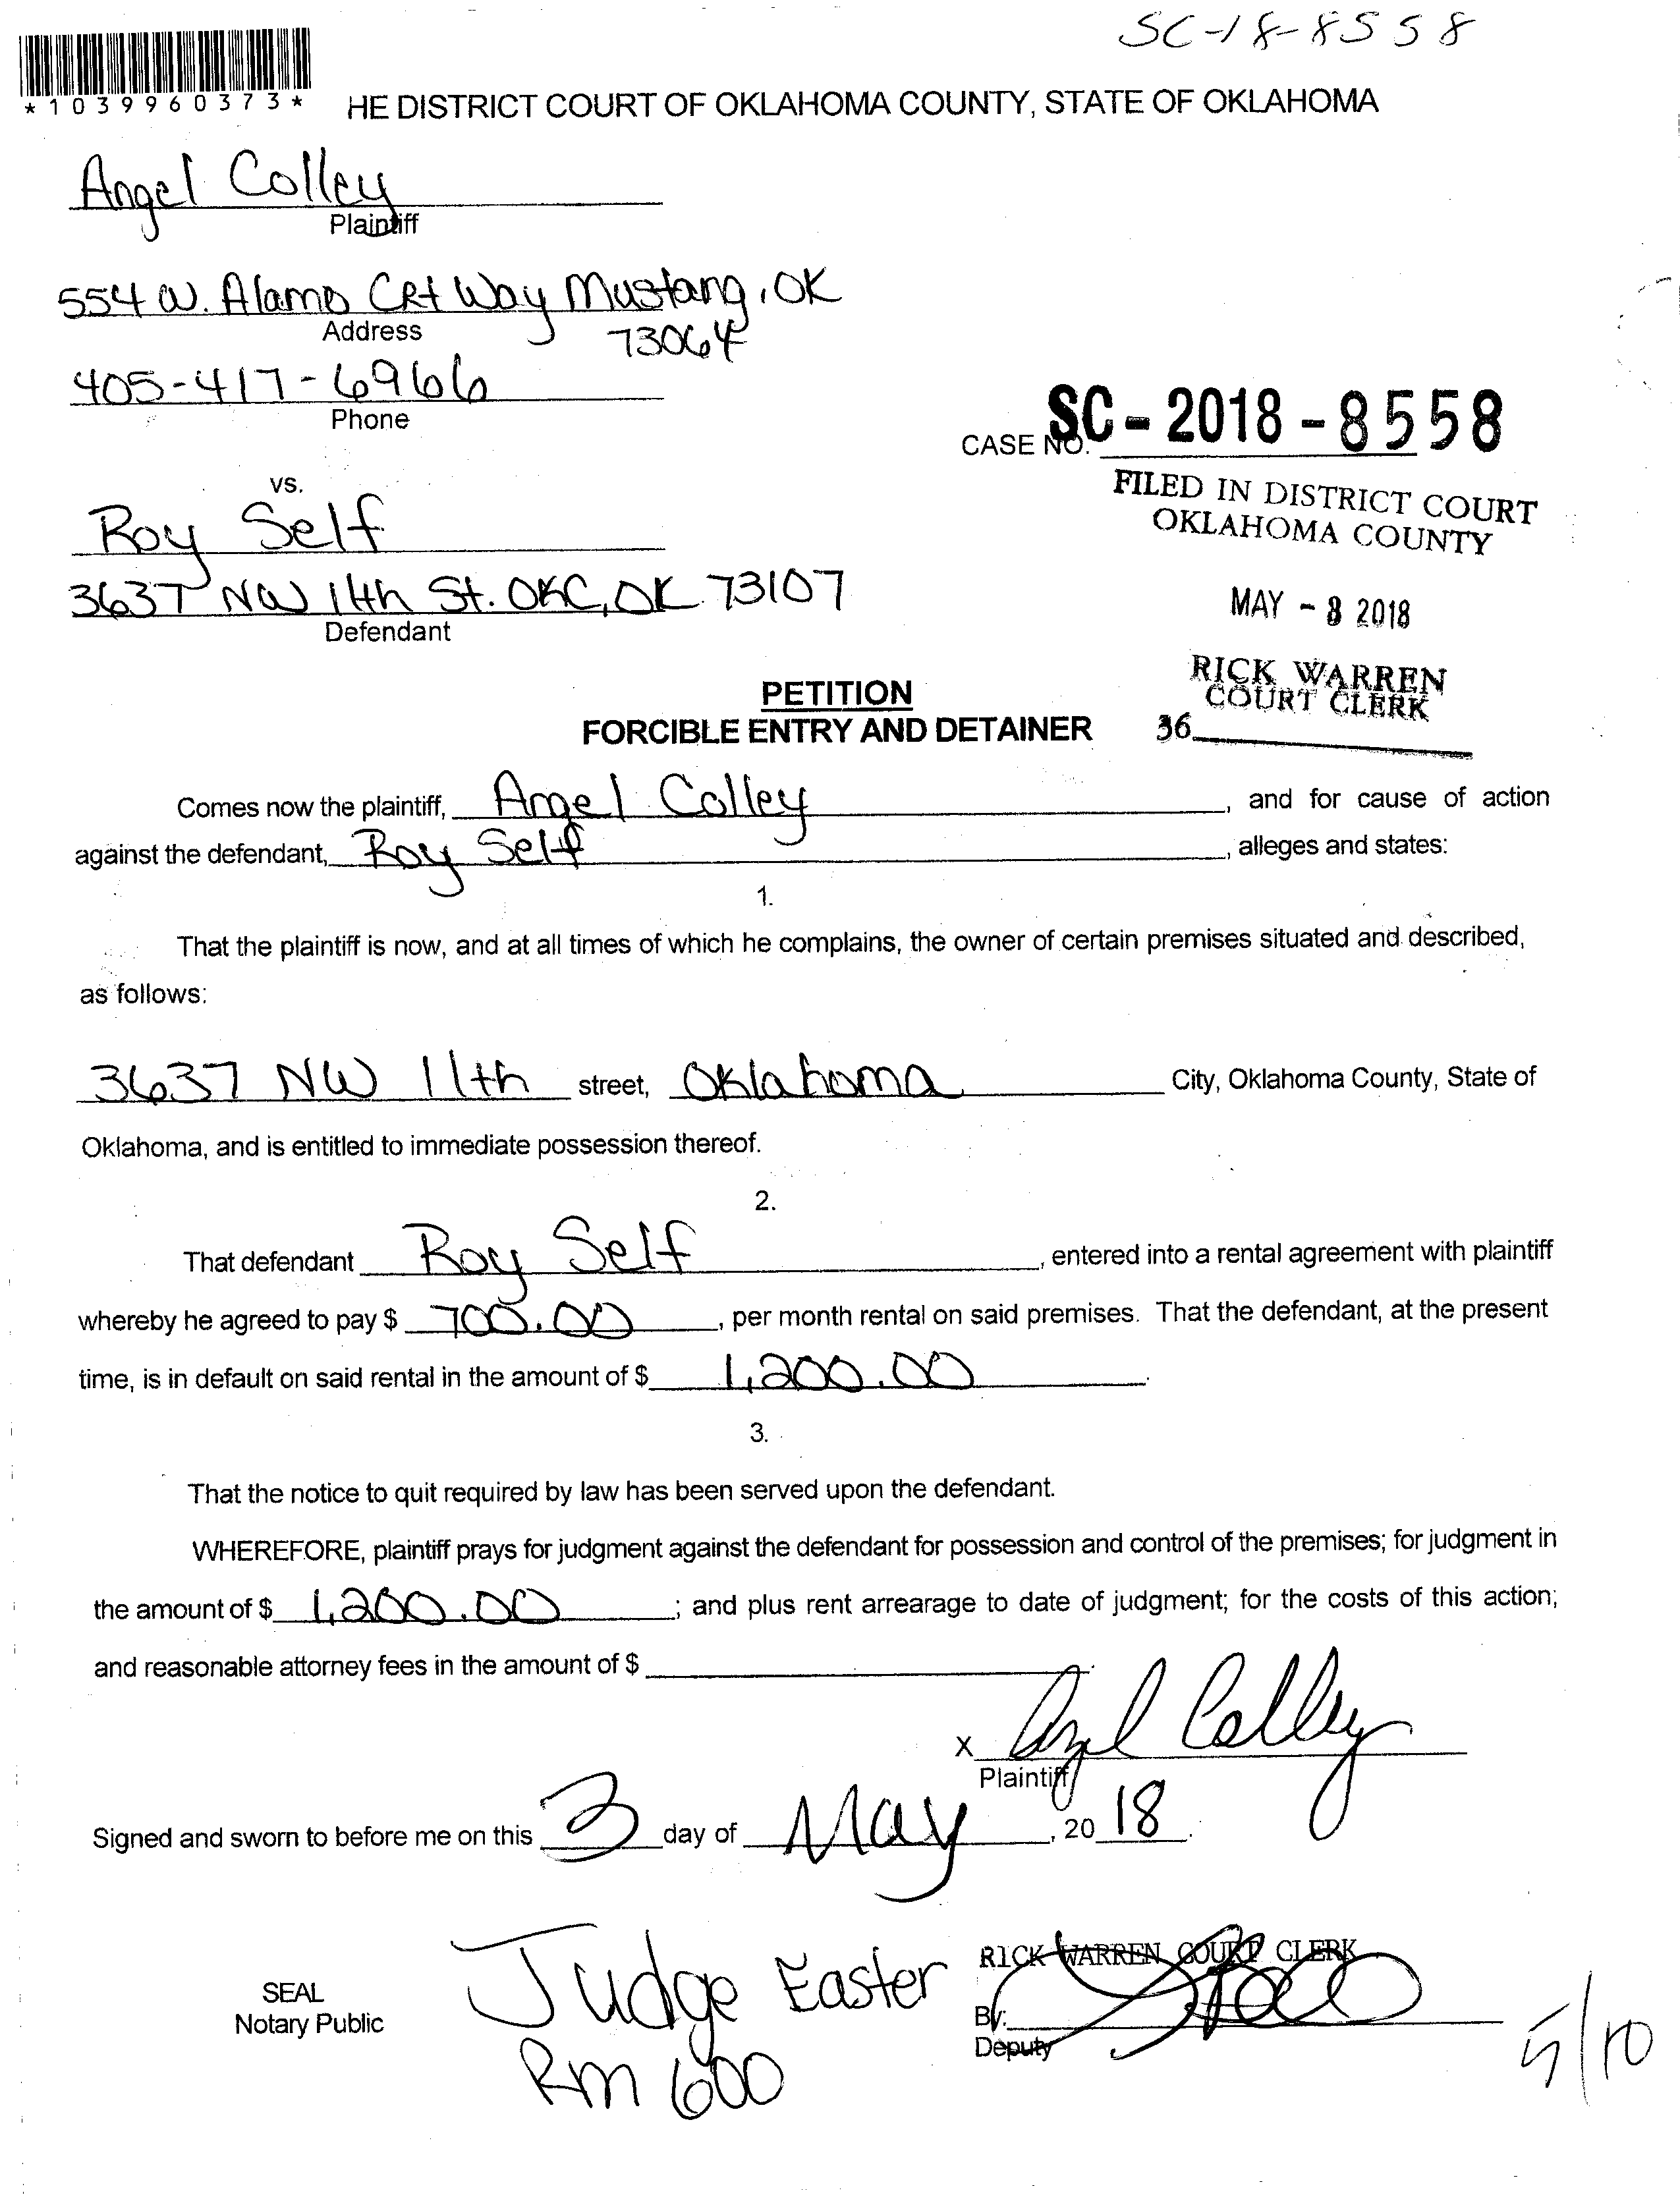 SC-18-8558
*1039960373*
HE DISTRICT COURT OF OKLAHOMA COUNTY, STATE OF OKLAHOMA
Angel Colley
Plaintiff
554 W. Alamo Crt Way Mustang, OK
Address
73064
405-417-6966
Phone
CASE NO. SC-2018-8558
FILED IN DISTRICT COURT
OKLAHOMA COUNTY
vs.
Roy Self
3637 NW 11th St. OKC, OK 73107
Defendant
MAY - 8 2018
RICK WARREN
COURT CLERK
36
PETITION
FORCIBLE ENTRY AND DETAINER
Comes now the plaintiff, Angel Colley, and for cause of action
against the defendant, Roy Self, alleges and states:
1.
That the plaintiff is now, and at all times of which he complains, the owner of certain premises situated and described,
as follows:
3637 NW 11th street, Oklahoma City, Oklahoma County, State of
Oklahoma, and is entitled to immediate possession thereof.
2.
That defendant Roy Self, entered into a rental agreement with plaintiff
whereby he agreed to pay $ 700.00, per month rental on said premises. That the defendant, at the present
time, is in default on said rental in the amount of $ 1,200.00.
3.
That the notice to quit required by law has been served upon the defendant.
WHEREFORE, plaintiff prays for judgment against the defendant for possession and control of the premises; for judgment in
the amount of $ 1,200.00; and plus rent arrearage to date of judgment; for the costs of this action;
and reasonable attorney fees in the amount of $
X Angel Colley
Plaintiff
Signed and sworn to before me on this 3 day of May, 2018.
SEAL
Notary Public
Judge Easter
Rm 600
RICK WARREN COURT CLERK
By:
Deputy
5/10